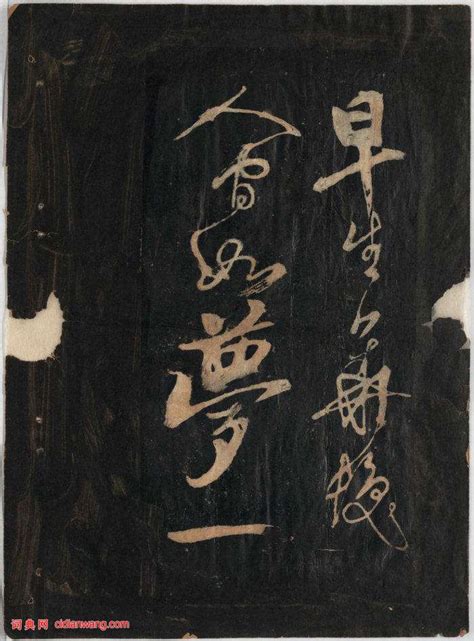 早生華髮
人間如夢一
词典网 cidianwang.com